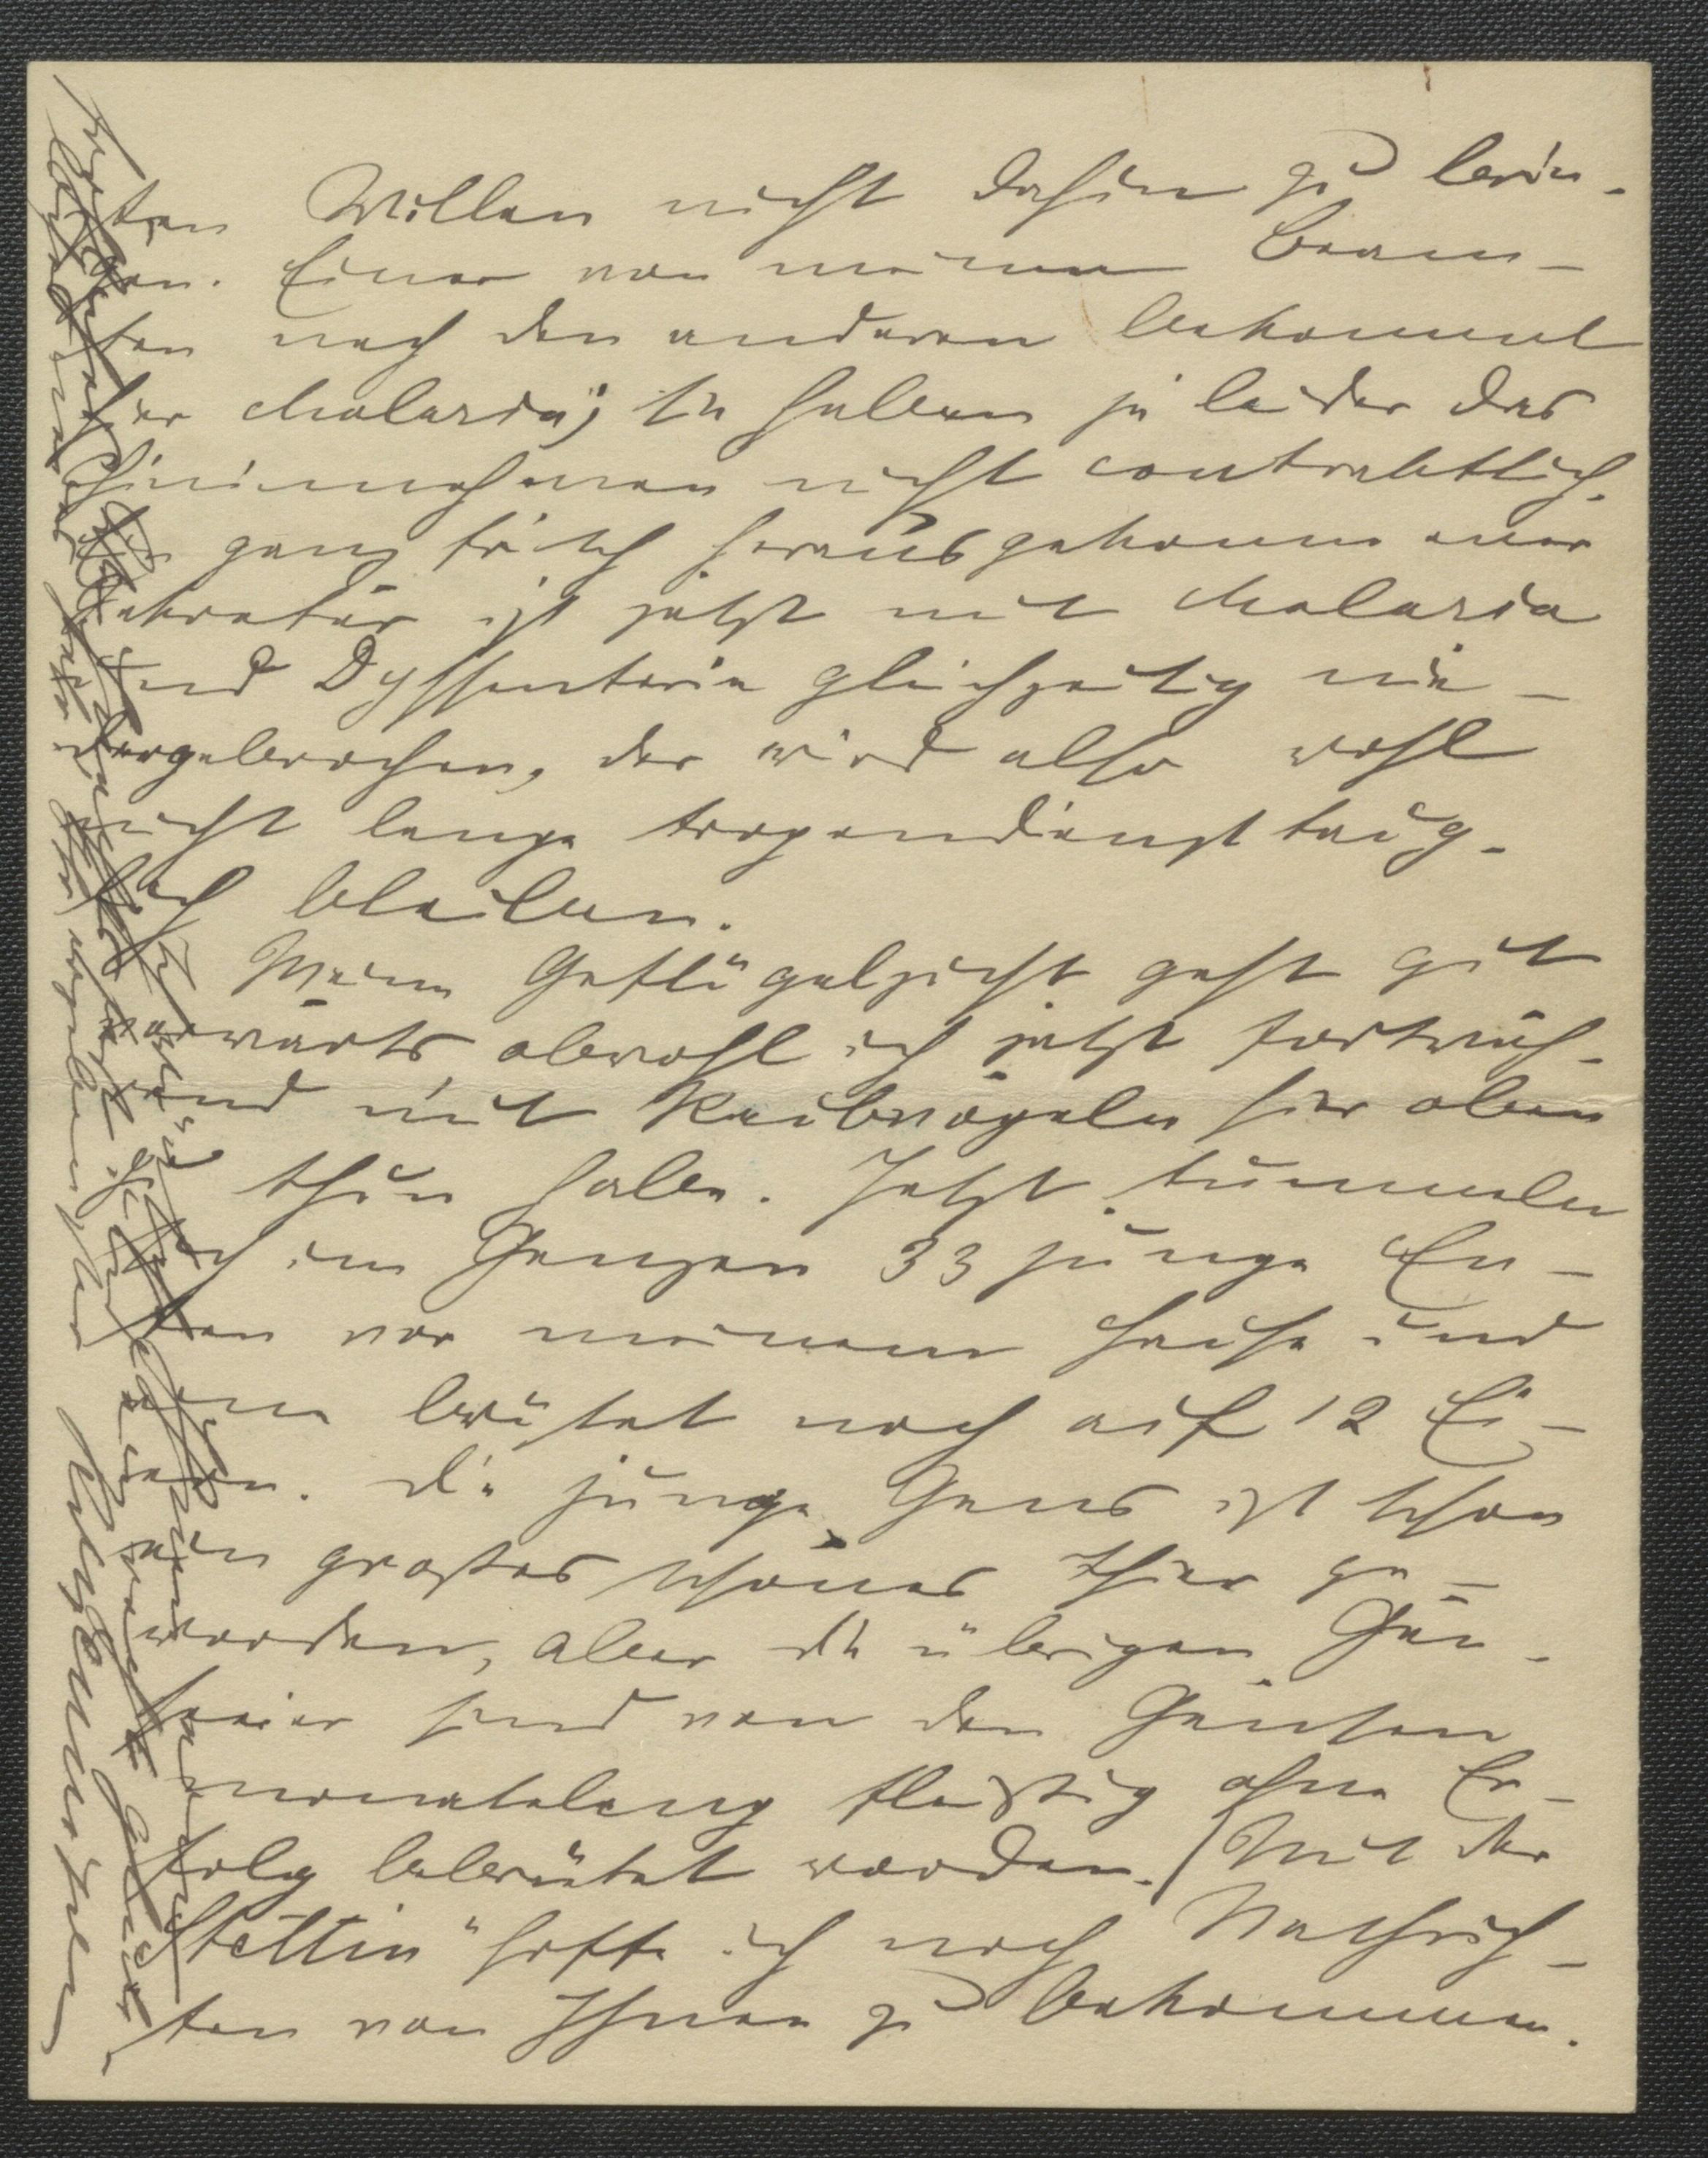 ten Willen nicht dahin zu brin-
gen. Einer von meinen Beam-
ten nach den anderen bekommt
hier Malaria; sie haben ja leider das
Chininnehmen nicht contraktlich.
Ein ganz frisch herausgekommener
Sekretär ist jetzt mit Malaria
und Dyssenterie gleichzeitig nie-
dergebrochen, der wird also wohl
nicht lange tropendiensttaug-
lich bleiben.
Meine Geflügelzucht geht gut
vorwärts, obwohl ich jetzt fortwäh-
rend mit Raubvögeln hier oben
zu thun habe. Jetzt tummeln
sich im Ganzen 33 junge En-
ten vor meinem Hause und
eine brütet noch auf 12 Ei-
ern. Die junge Gans ist schon
ein großes schönes Thier ge-
worden, aber die übrigen Gän-
seeier sind von den Gänsen
monatelang fleißig ohne Er-
folg bebrütet worden. Mit der
"Stettin" hoffe ich noch Nachrich-
ten von Ihnen zu bekommen.